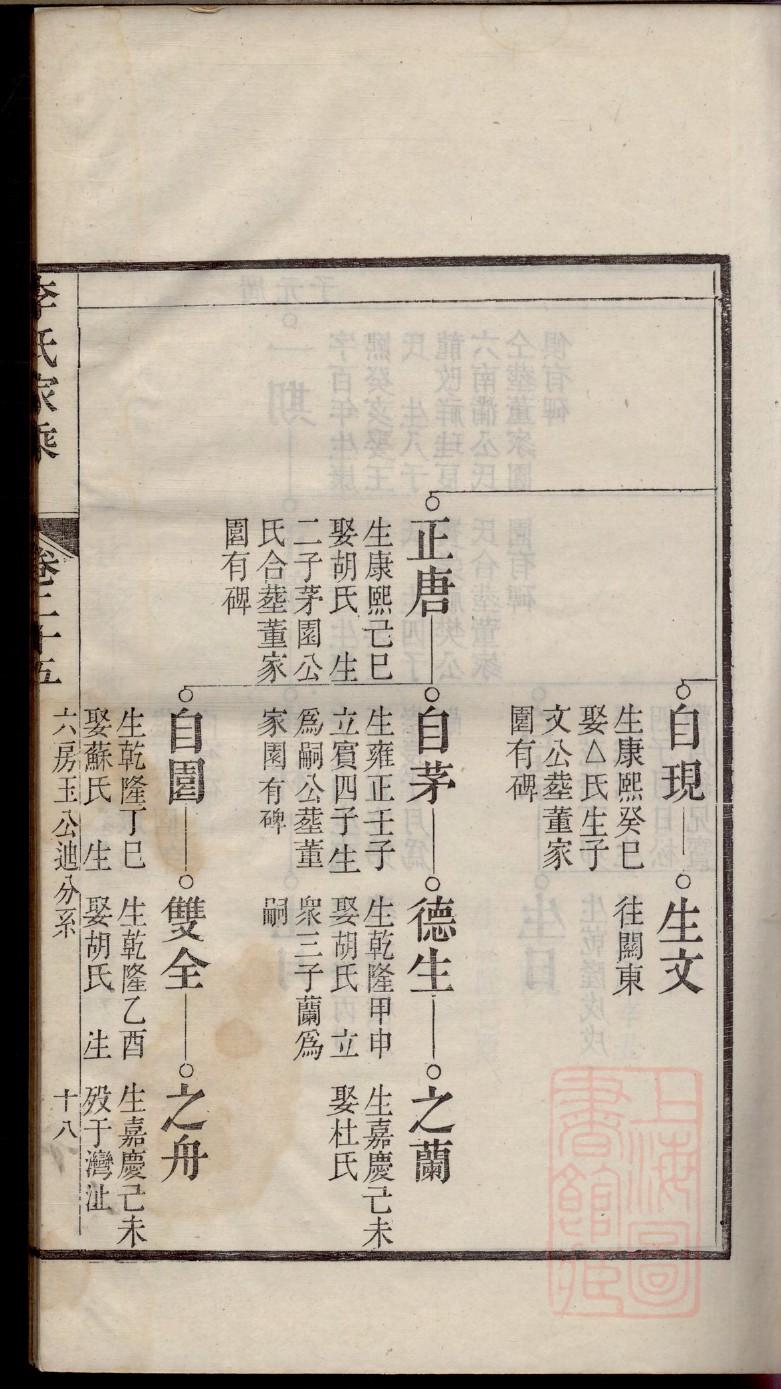 自現
生康熙癸巳
娶△氏生子
文公塟董家
園有碑
生文
往關東
正唐
生康熙己巳
娶胡氏 生
二子茅園公
氏合塟董家
園有碑
自茅
生雍正壬子
立賓四子生
爲嗣公塟董
家園有碑
德生
生乾隆甲申
娶胡氏 立
眾三子蘭爲
嗣
之蘭
生嘉慶己未
娶杜氏
自園
生乾隆丁巳
娶蘇氏 生
雙全
生乾隆乙酉
娶胡氏 生
之舟
生嘉慶己未
歿于灣沚
六房玉公迆分系 十八
李氏家乘 卷二十五
上海圖
書館藏